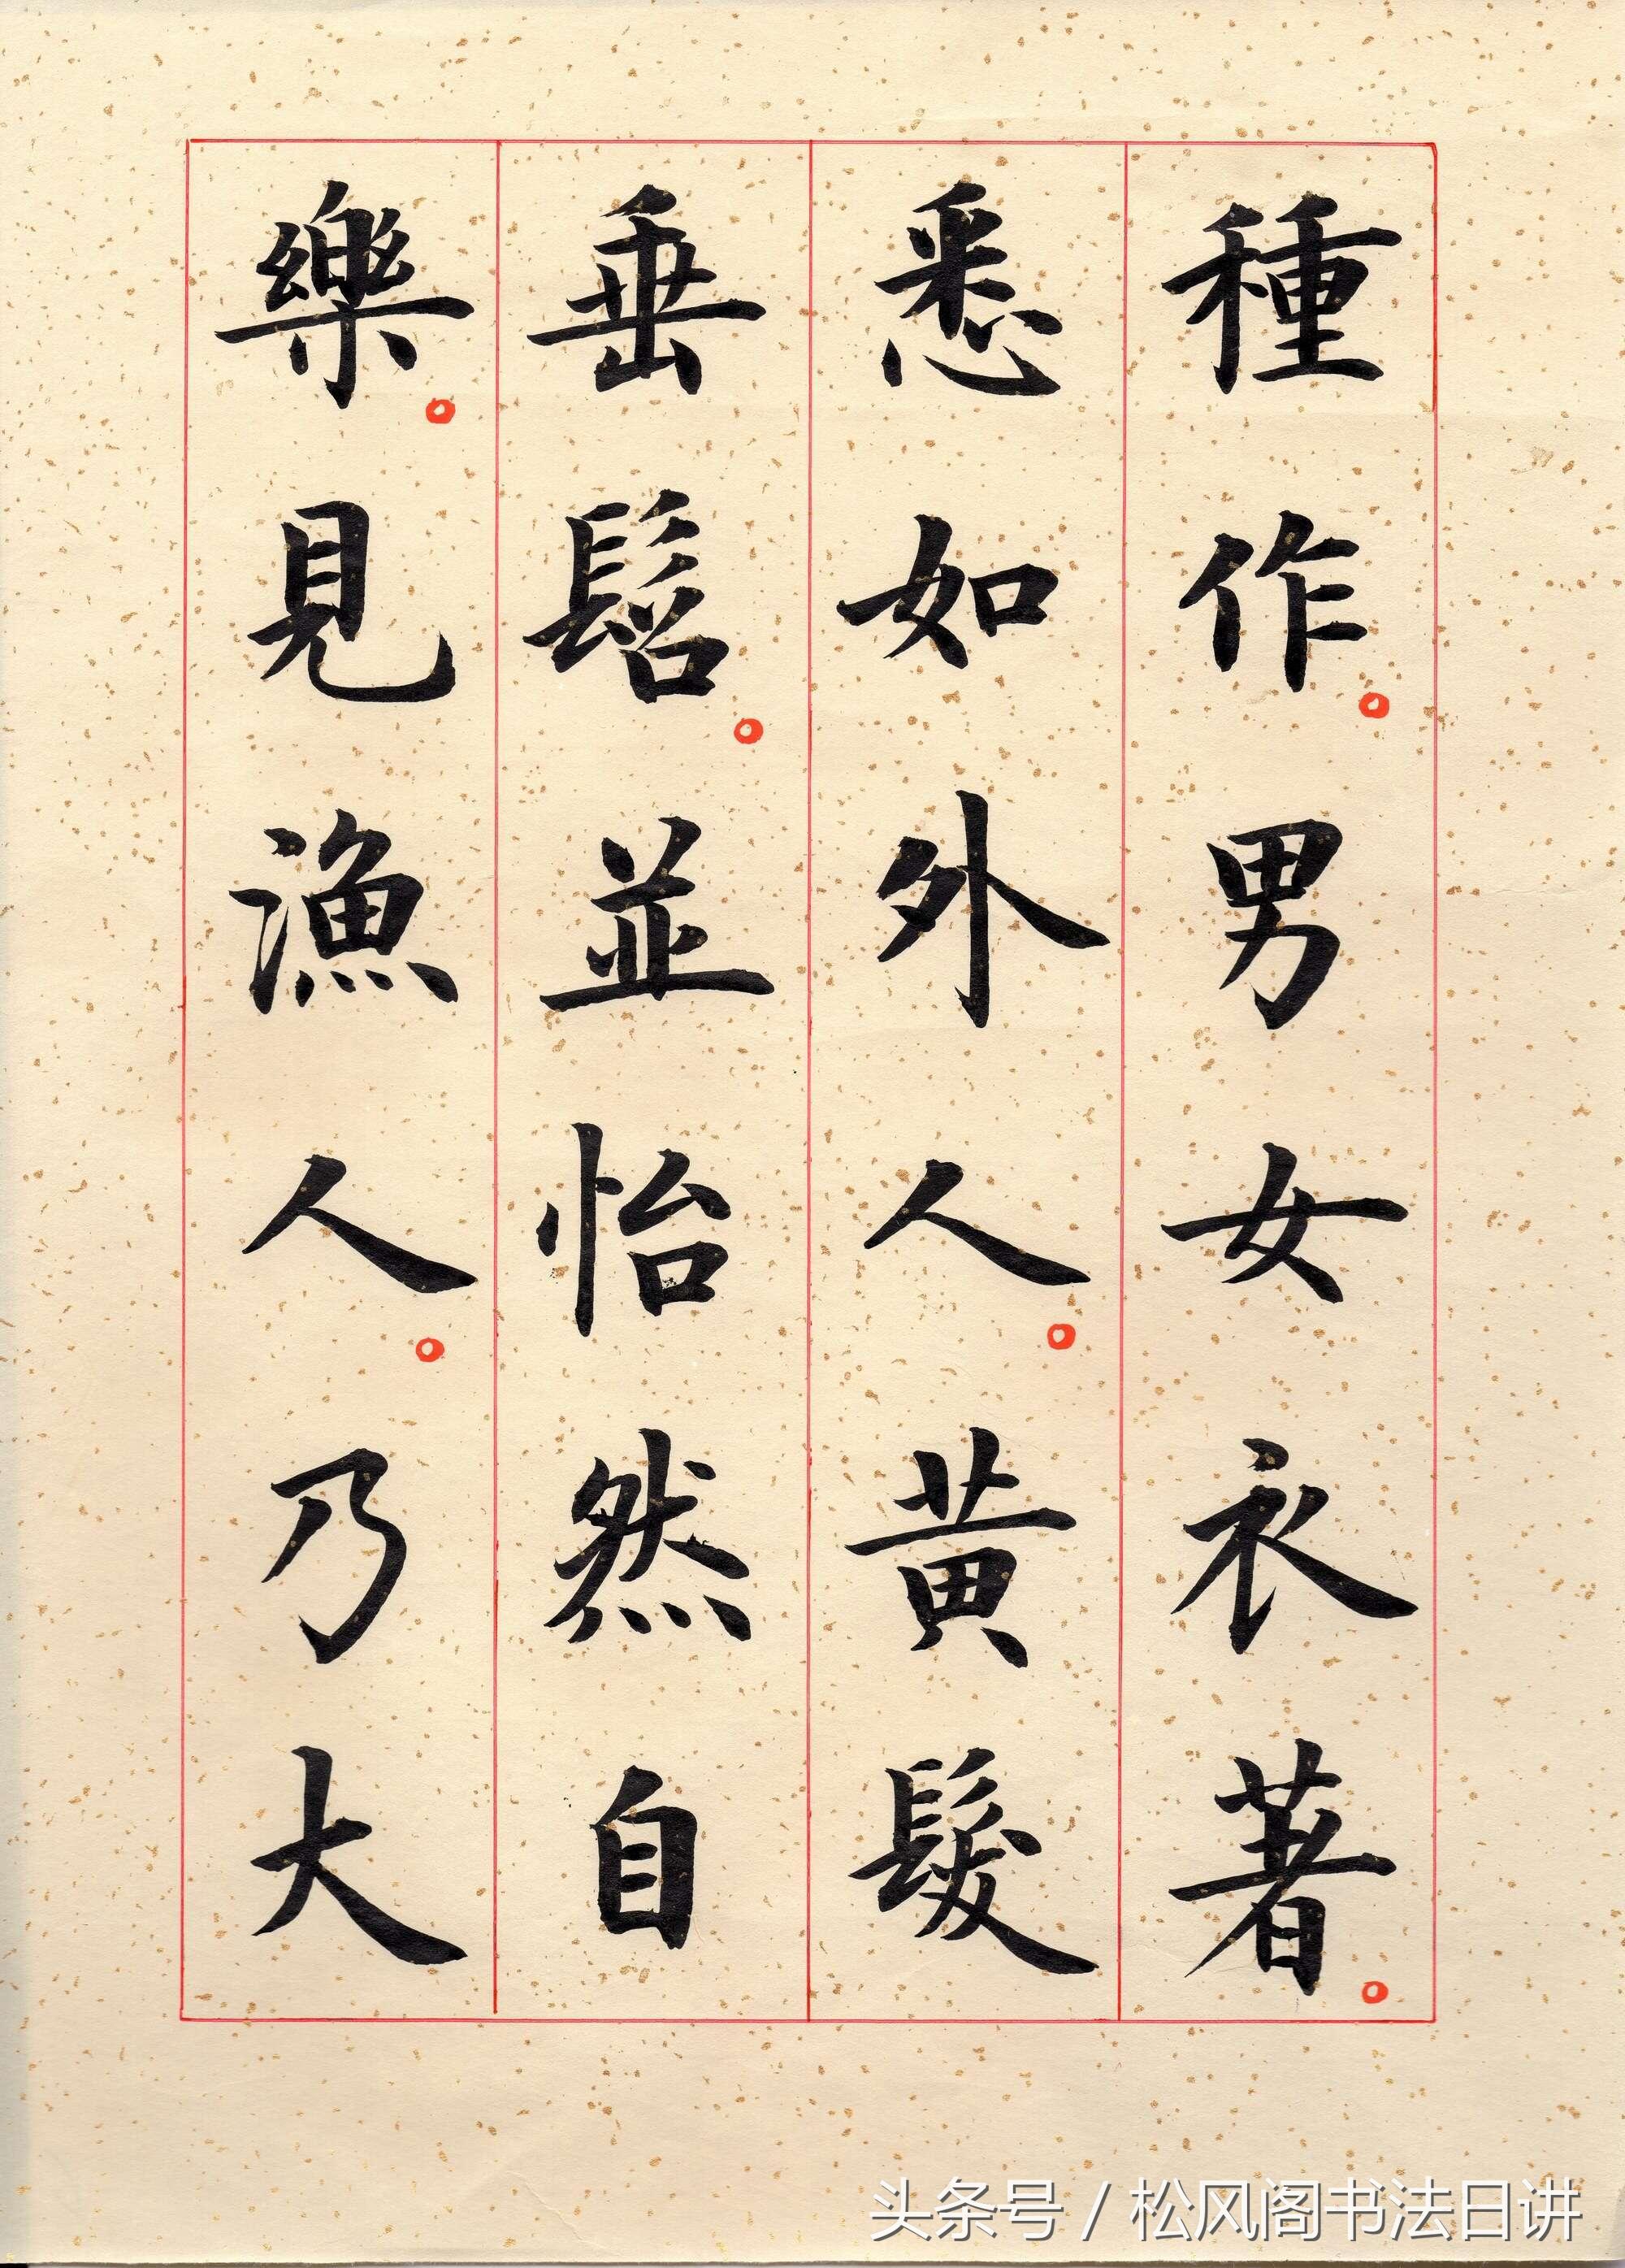 種作。男女衣著。
悉如外人。黄髮
垂髫。並怡然自
樂。見漁人。乃大
头条号 / 松风阁书法日讲